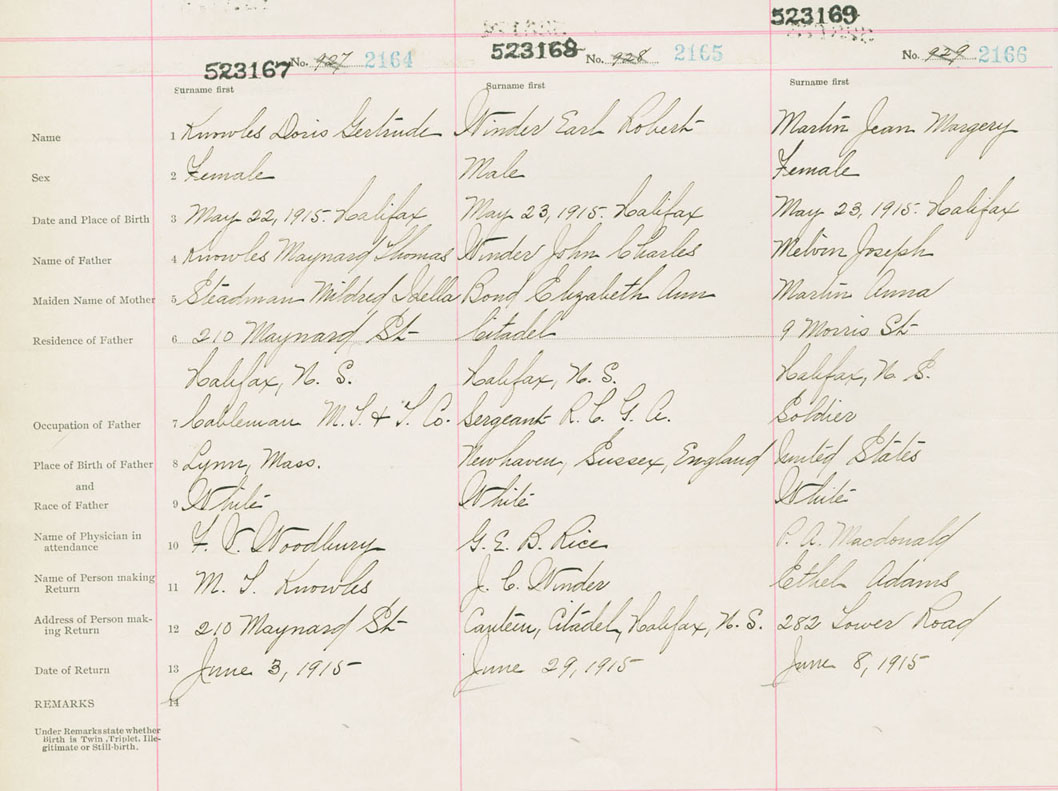 523169
523167 No. 927 2164 523168 No. 928 2165 No. 929 2166
Surname first Surname first Surname first
Name 1 Knowles Doris Gertrude Winder Earl Robert Martin Jean Margery
Sex 2 Female Male Female
Date and Place of Birth 3 May 22, 1915. Halifax May 23, 1915. Halifax May 23, 1915. Halifax
Name of Father 4 Knowles Maynard Thomas Winder John Charles Melvin Joseph
Maiden Name of Mother 5 Steadman Mildred Idella Bond Elizabeth Ann Martin Anna
Residence of Father 6 210 Maynard St Citadel 9 Morris St
Halifax, N. S. Halifax, N. S. Halifax, N. S.
Occupation of Father 7 Cableman M. T. & T. Co. Sergeant R. C. G. A. Soldier
Place of Birth of Father 8 Lynn, Mass. Newhaven, Sussex, England United States
and
Race of Father 9 White White White
Name of Physician in
attendance 10 F. V. Woodbury G. E. B. Rice P. A. Macdonald
Name of Person making
Return 11 M. T. Knowles J. C. Winder Ethel Adams
Address of Person mak-
ing Return 12 210 Maynard St Canteen, Citadel, Halifax, N. S. 282 Lower Road
Date of Return 13 June 3, 1915 June 29, 1915 June 8, 1915
REMARKS 14
Under Remarks state whether
Birth is Twin, Triplet, Ille-
gitimate or Still-birth.